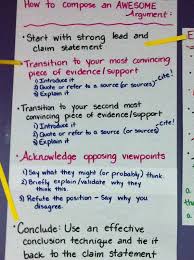 How to compose an AWESOME
Argument:
• Start with strong lead and
claim statement
• Transition to your most convincing
piece of evidence/support
1) Introduce it
2) Quote or refer to a source (or sources)
cite!
3) Explain it
• Transition to your second most
convincing piece of evidence/support
1) Introduce it
2) Quote or refer to source (or sources)
cite!
3) Explain it
• Acknowledge opposing viewpoints
1) Say what they might (or probably) think.
2) Briefly explain/validate why they
think this.
3) Refute the position - Say why you
disagree.
• Conclude: Use an effective
conclusion technique and tie it
back to the claim statement